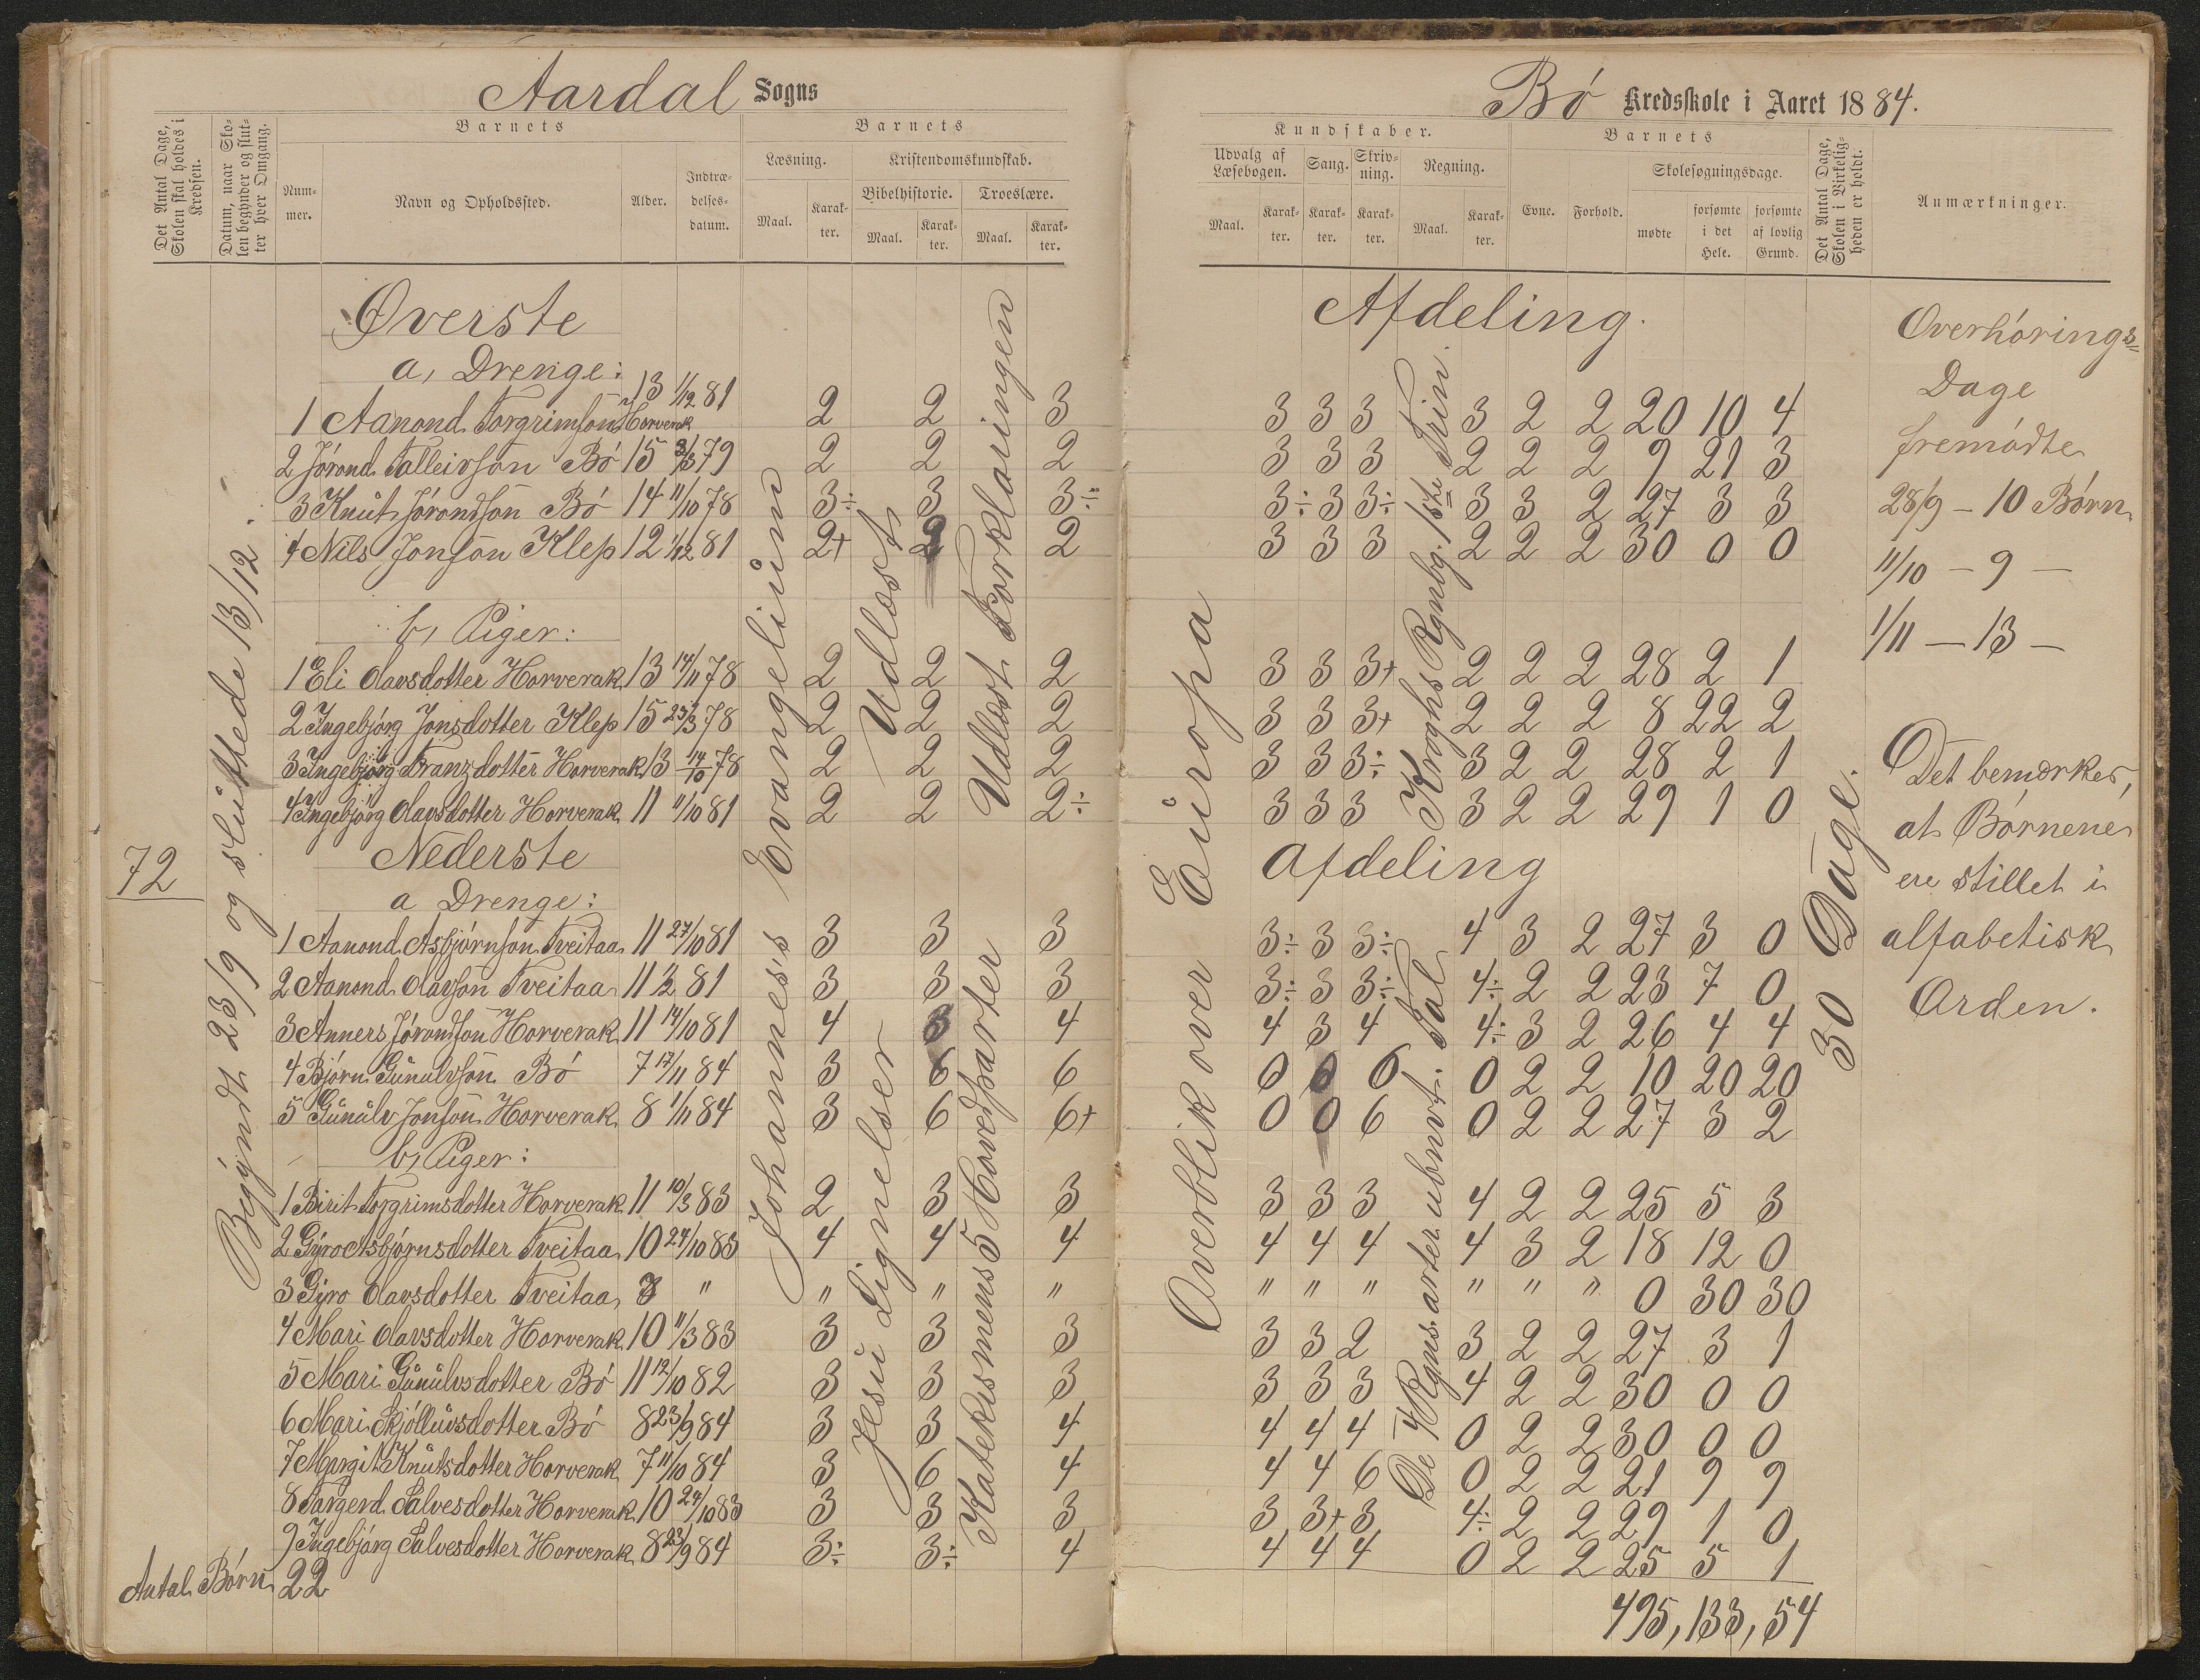 Aardal Sogns
Det Antal Dage, Skolen skal holdes i Kredsen.
Datum, naar Skolen begynder og slutter hver Omgang.
Barnets
Nummer.
Navn og Opholdssted.
Alder.
Indtrædelsesdatum.
Barnets
Læsning.
Maal.
Karakter.
Kristendomskundskab.
Bibelhistorie.
Maal.
Karakter.
Troeslære.
Maal.
Karakter.
72
Begyndt 23/9 og sluttede 13/12.
Øverste
a, Drenge:
1 Aanond Torgrimson Horverak 13 1/12 81 2 2 3
2 Jórond Talleivson Bó 15 3/3 79 2 2 2
3 Knut Jórondson Bó 14 11/10 78 3÷ 3 3÷
4 Nils Jonson Klep 12 1/12 81 2+ 2 2
b, Piger:
1 Eli Olavsdotter Horverak 13 14/11 78 2 2 2
2 Ingebjórg Jonsdotter Klep 15 23/3 78 2 2 2
3 Ingebjórg Franzdotter Horverak 13 14/10 78 2 2 2
4 Ingebjórg Olavsdotter Horverak 11 11/10 81 2 2 2÷
Nederste
a Drenge:
1 Aanond Asbjórnson Tveitaa 11 27/10 81 3 3 3
2 Aanond Olavson Tveitaa 11 1/2 81 3 3 3
3 Anners Jórondson Horverak 11 14/10 81 4 3 4
4 Bjórn Gunulvson Bó 7 17/11 84 3 6 6
5 Gunulv Jonson Horverak 8 1/11 84 3 6 6+
b, Piger:
1 Birit Torgrimsdotter Horverak 11 10/3 83 2 3 3
2 Gyro Asbjórnsdotter Tveitaa 10 24/10 83 4 4 4
3 Gyro Olavsdotter Tveitaa 8 " " " "
4 Mari Olavsdotter Horverak 10 11/3 83 3 3 3
5 Mari Gunulvsdotter Bó 11 12/10 82 3 3 3
6 Mari Skjólluvsdotter Bó 8 23/9 84 3 3 4
7 Margit Knutsdotter Horverak 7 11/10 84 3 6 4
8 Targerd Salvesdotter Horverak 10 24/10 83 3 3 3
9 Ingebjórg Salvesdotter Horverak 8 23/9 84 3÷ 3÷ 4
Antal Børn 22
Johannes's Evangelium
Udlæst
Jesu Lignelser
Udlæst Forklaringen
Katekismens 5 Hovedparter
Bó Kredsskole i Aaret 1884.
Kundskaber.
Udvalg af Læsebogen.
Maal.
Karakter.
Sang.
Karakter.
Skrivning.
Karakter.
Regning.
Maal.
Karakter.
Barnets
Evne.
Forhold.
Skolesøgningsdage.
mødte
forsømte i det Hele.
forsømte af lovlig Grund.
Det Antal Dage, Skolen i Virkeligheden er holdt.
Anmærkninger.
Afdeling.
3 3 3 3 2 2 20 10 4
3 3 3 2 2 2 9 21 3
3÷ 3 3÷ 3 3 2 27 3 3
3 3 3 2 2 2 30 0 0
3 3 3+ 2 2 2 28 2 1
3 3 3+ 2 2 2 8 22 2
3 3 3÷ 3 2 2 28 2 1
3 3 3 3 2 2 29 1 0
Afdeling
3÷ 3 3÷ 4 3 2 27 3 0
3÷ 3 3÷ 4÷ 2 2 23 7 0
4 3 4 4÷ 3 2 26 4 4
0 0 6 0 2 2 10 20 20
0 0 6 0 2 2 27 3 2
3 3 3 4 2 2 25 5 3
4 4 4 4 3 2 18 12 0
" " " " " " 0 30 30
3 3 2 3 2 2 27 3 1
3 3 3 4 2 2 30 0 0
4 4 4 0 2 2 30 0 0
4 4 6 0 2 2 21 9 9
3 3+ 3 4÷ 2 2 29 1 0
4 4 4 0 2 2 25 5 1
495, 133, 54
Overblik over Europa
Kroghs Rgnbg. 1ste Trin.
De 4 Rgns. arter ubnvt. Tal
30 Dage.
Overhórings=
Dage
fremódte
28/9 - 10 Bórn
11/10 - 9 -
1/11 - 13 -
Det bemærkes,
at Bórnene
ere stillet i
alfabetisk
Orden.